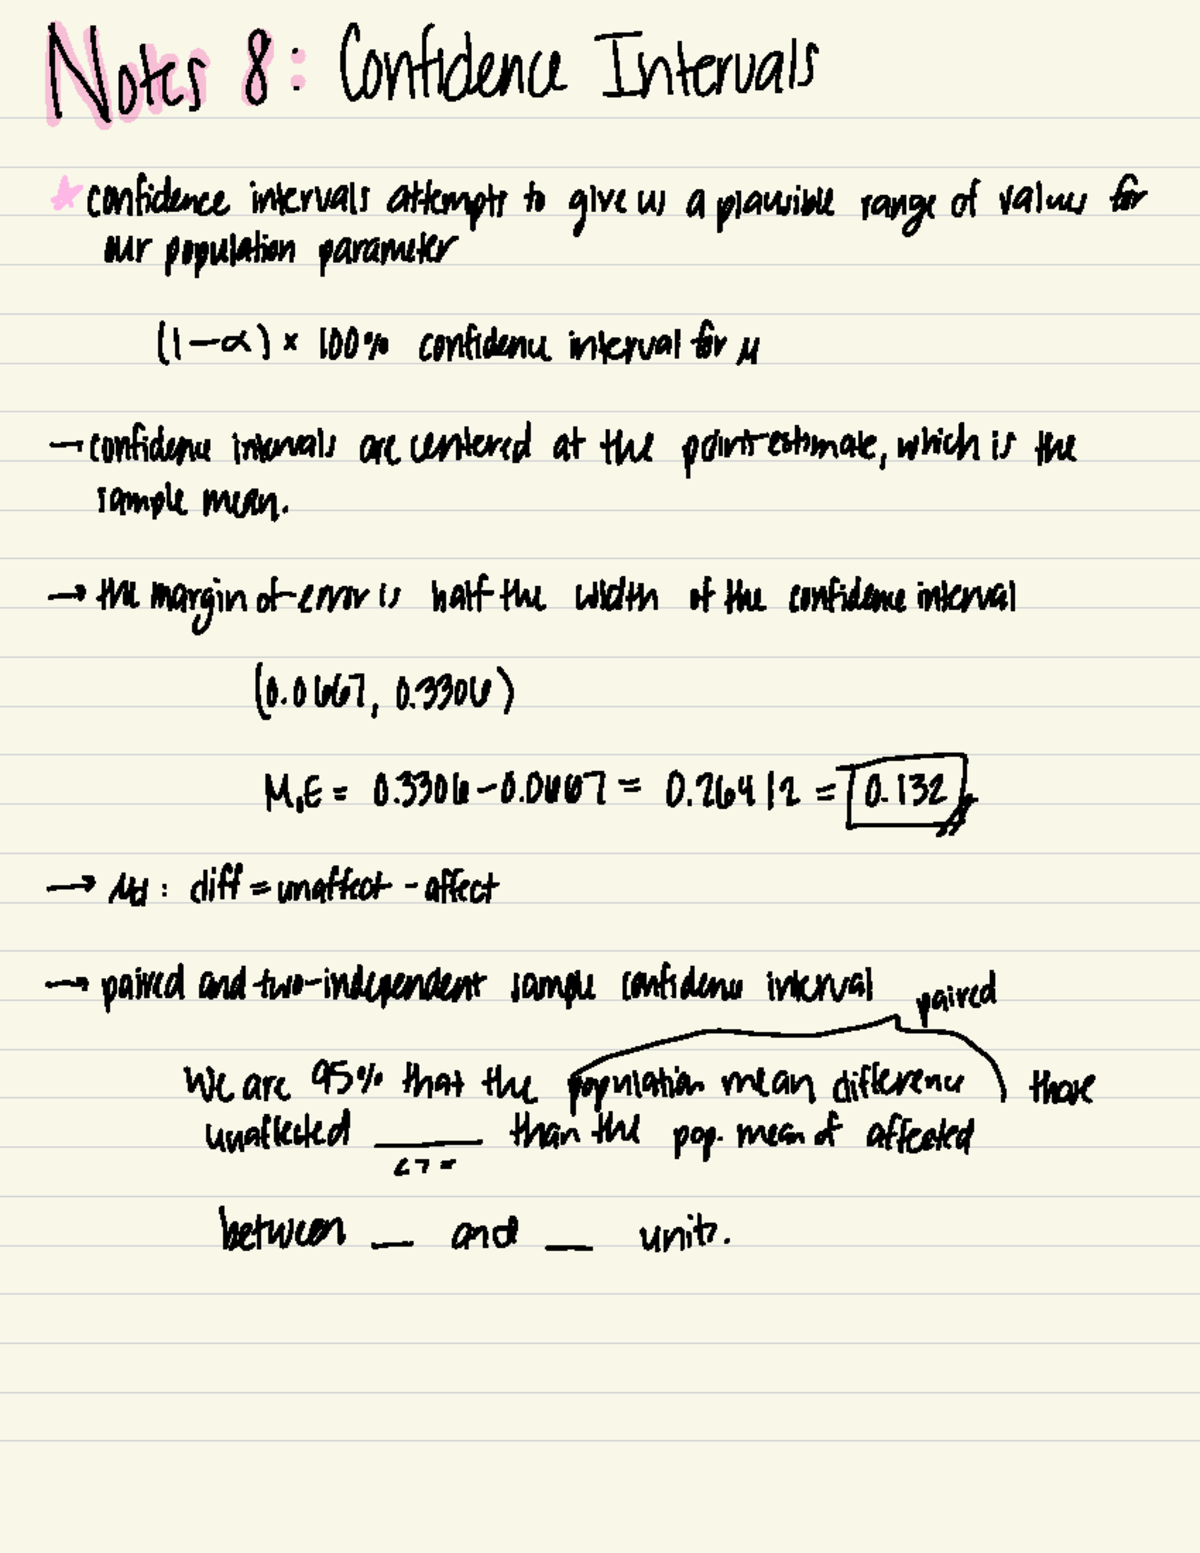 Notes 8: Confidence Intervals
confidence intervals attempts to give us a plausible range of values for
our population parameter
(1-α) × 100% confidence interval for μ
→ confidence intervals are centered at the point estimate, which is the
sample mean.
→ the margin of error is half the width of the confidence interval
(0.0667, 0.3306)
M.E = 0.3306 - 0.0667 = 0.264/2 = 0.132
→ μd: diff = unaffect - affect
→ paired and two-independent sample confidence interval
paired
We are 95% that the population mean difference those
unaffected ____ than the pop. mean of affected
< > =
between __ and __ units.